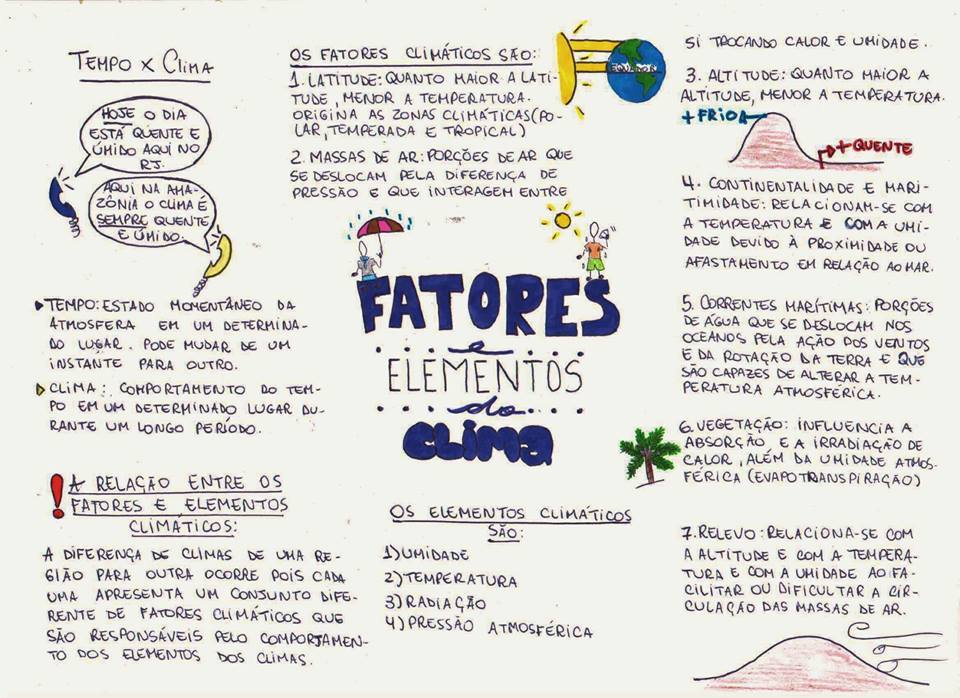 TEMPO X CLIMA
HOJE O DIA
ESTÁ QUENTE E
ÚMIDO AQUI NO
RJ.
AQUI NA AMA-
ZÔNIA O CLIMA É
SEMPRE QUENTE
E ÚMIDO.
TEMPO: ESTADO MOMENTÂNEO DA
ATMOSFERA EM UM DETERMINA-
DO LUGAR. PODE MUDAR DE UM
INSTANTE PARA OUTRO.
CLIMA: COMPORTAMENTO DO TEM-
PO EM UM DETERMINADO LUGAR DU-
RANTE UM LONGO PERÍODO.
! A RELAÇÃO ENTRE OS
FATORES E ELEMENTOS
CLIMÁTICOS:
A DIFERENÇA DE CLIMAS DE UMA RE-
GIÃO PARA OUTRA OCORRE POIS CADA
UMA APRESENTA UM CONJUNTO DIFE-
RENTE DE FATORES CLIMÁTICOS QUE
SÃO RESPONSÁVEIS PELO COMPORTAMEN-
TO DOS ELEMENTOS DOS CLIMAS.
OS FATORES CLIMÁTICOS SÃO:
1. LATITUDE: QUANTO MAIOR A LATI-
TUDE, MENOR A TEMPERATURA.
ORIGINA AS ZONAS CLIMÁTICAS (PO-
LAR, TEMPERADA E TROPICAL)
EQUADOR
2. MASSAS DE AR: PORÇÕES DE AR QUE
SE DESLOCAM PELA DIFERENÇA DE
PRESSÃO E QUE INTERAGEM ENTRE
FATORES
e
ELEMENTOS
do
CLIMA
OS ELEMENTOS CLIMÁTICOS
SÃO:
1) UMIDADE
2) TEMPERATURA
3) RADIAÇÃO
4) PRESSÃO ATMOSFÉRICA
SI TROCANDO CALOR E UMIDADE.
3. ALTITUDE: QUANTO MAIOR A
ALTITUDE, MENOR A TEMPERATURA.
+ FRIOA
+ QUENTE
4. CONTINENTALIDADE E MARI-
TIMIDADE: RELACIONAM-SE COM
A TEMPERATURA E COM A UMI-
DADE DEVIDO À PROXIMIDADE OU
AFASTAMENTO EM RELAÇÃO AO MAR.
5. CORRENTES MARÍTIMAS: PORÇÕES
DE ÁGUA QUE SE DESLOCAM NOS
OCEANOS PELA AÇÃO DOS VENTOS
E DA ROTAÇÃO DA TERRA E QUE
SÃO CAPAZES DE ALTERAR A TEM-
PERATURA ATMOSFÉRICA.
6. VEGETAÇÃO: INFLUENCIA A
ABSORÇÃO E A IRRADIAÇÃO DE
CALOR, ALÉM DA UMIDADE ATMOS-
FÉRICA (EVAPOTRANSPIRAÇÃO)
7. RELEVO: RELACIONA-SE COM
A ALTITUDE E COM A TEMPERA-
TURA E COM A UMIDADE AO FA-
CILITAR OU DIFICULTAR A CIR-
CULAÇÃO DAS MASSAS DE AR.